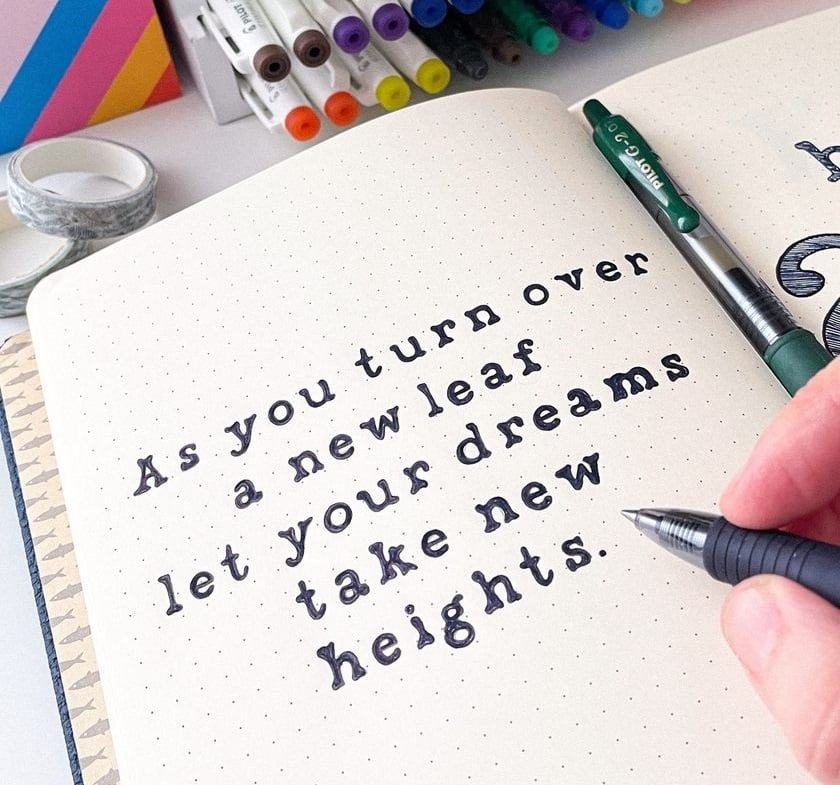 As you turn over
a new leaf
let your dreams
take new
heights.
PILOT G-2 07
PILOT
PILOT